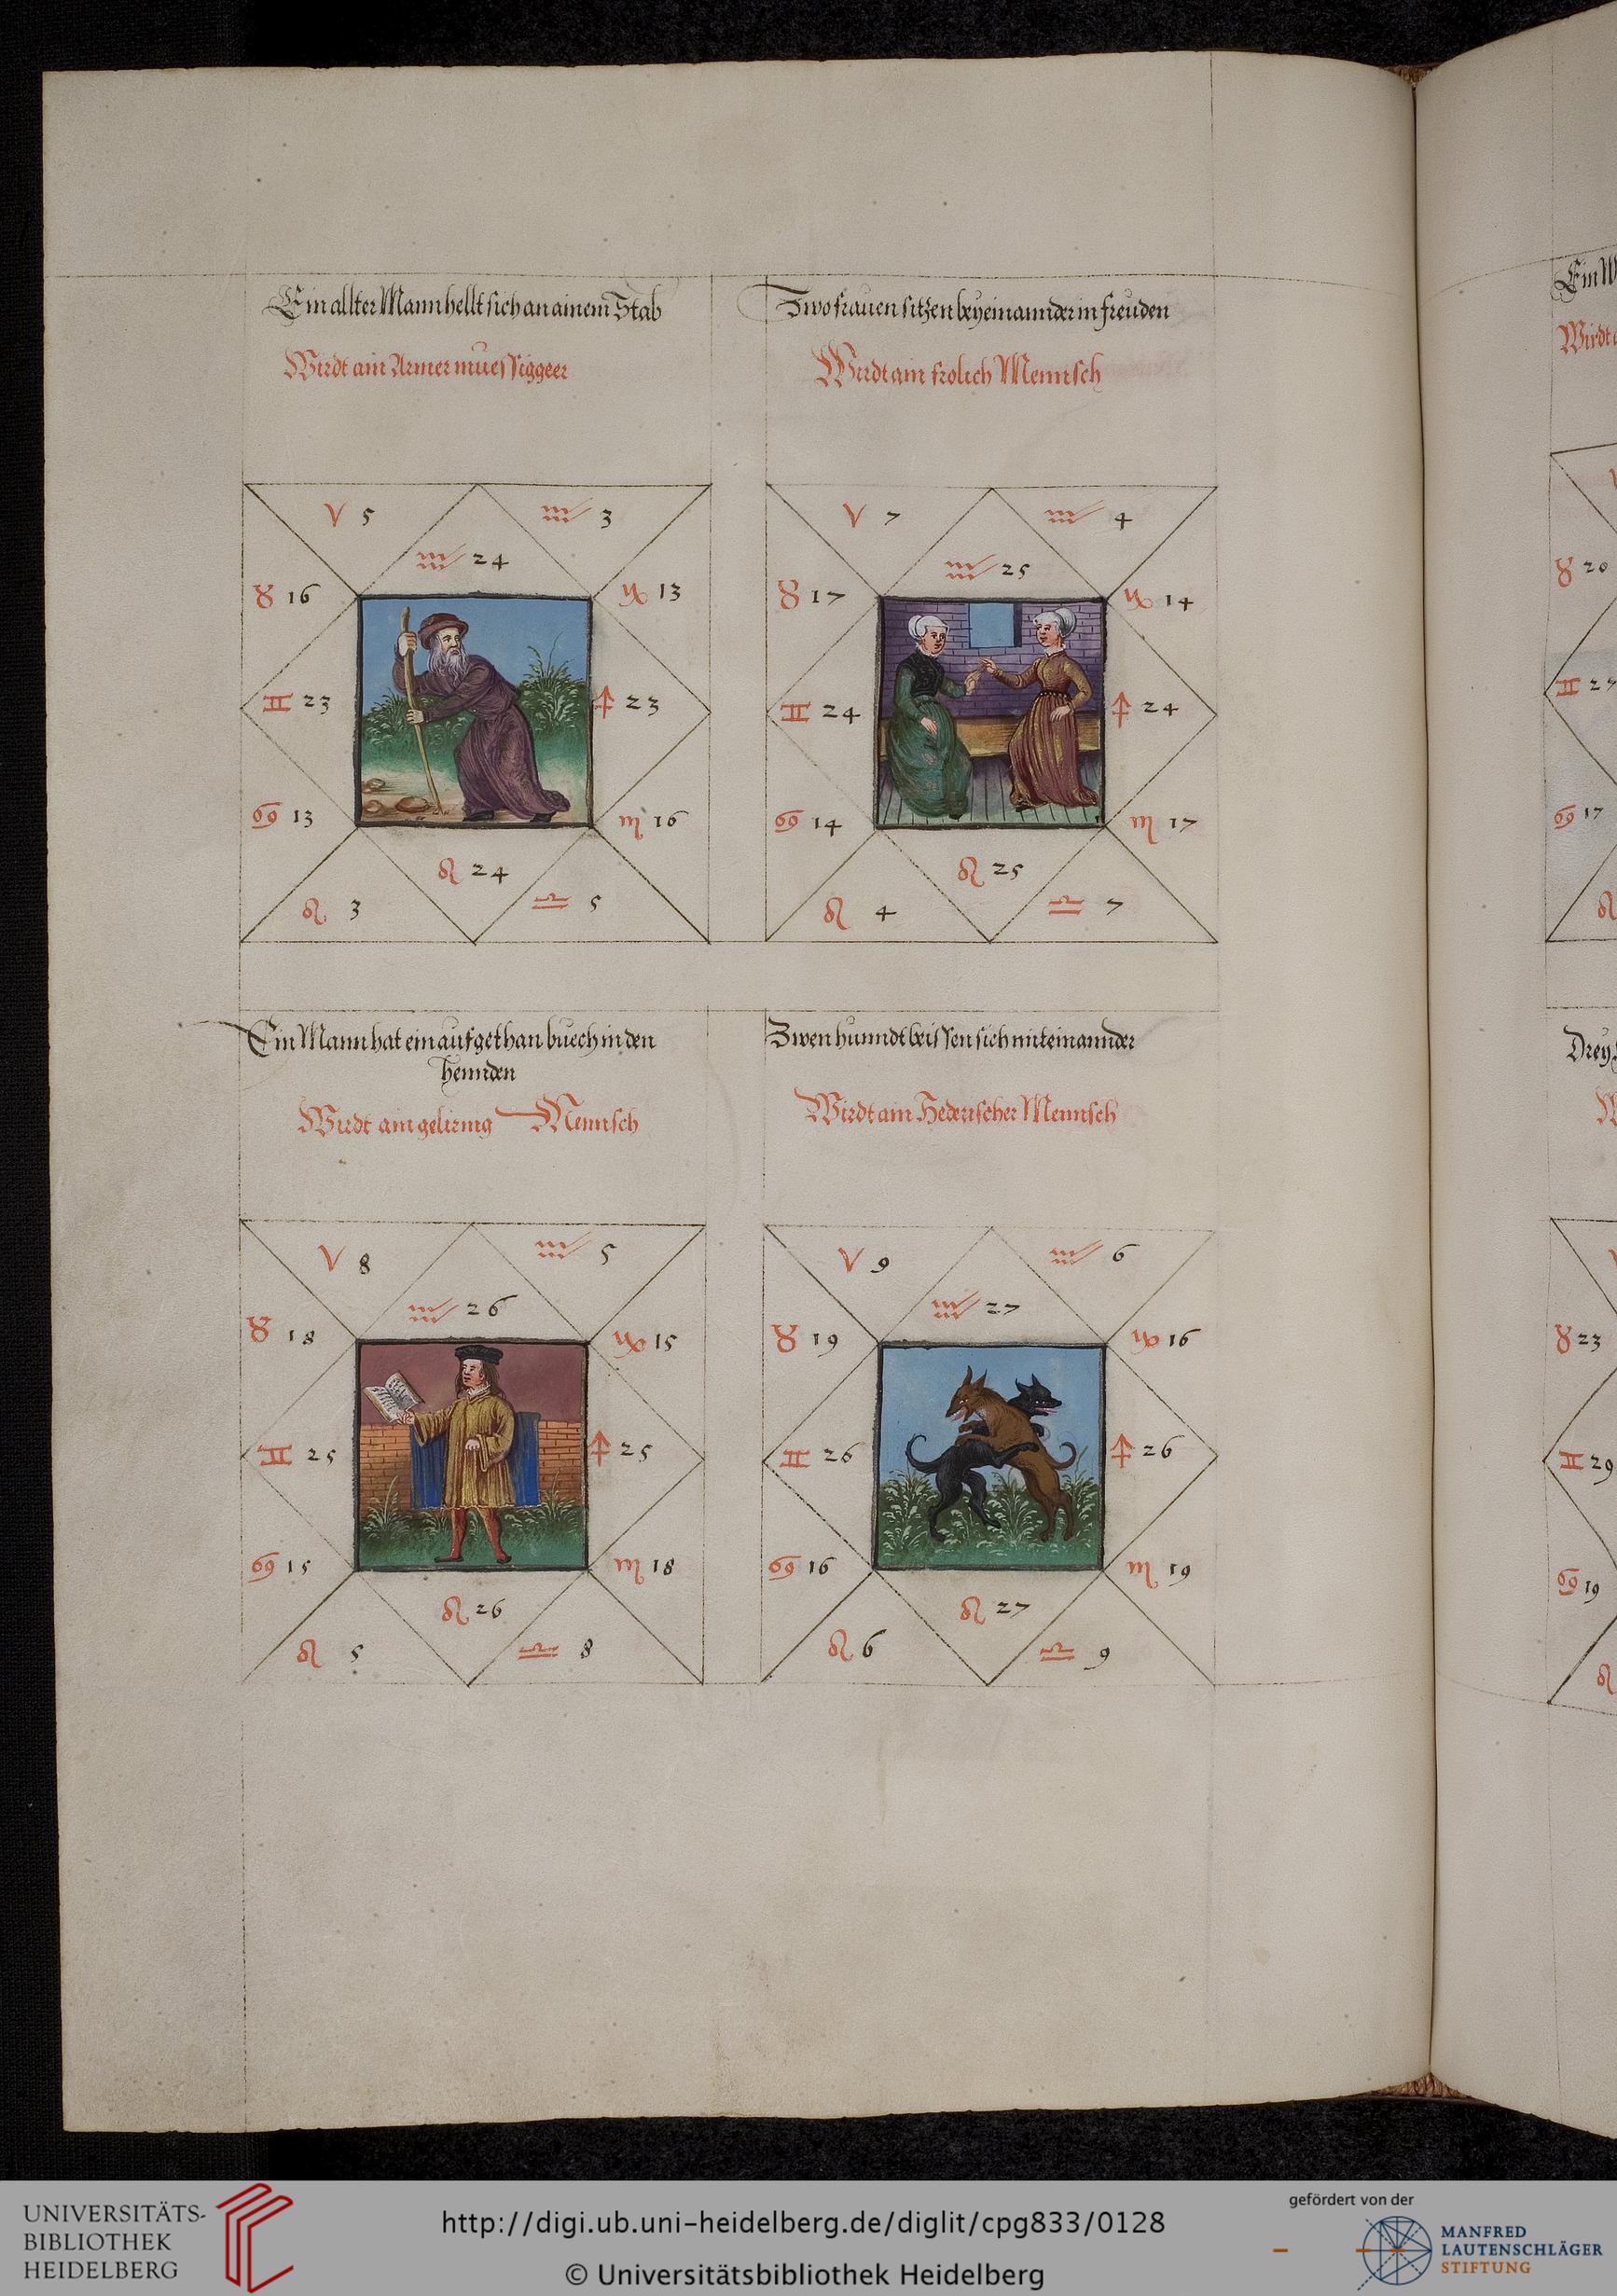 Ein allter Mann hellt sich an ainem Stab
Wirdt ain Armer muessiggeer
♈ 5
♒ 3
♒ 24
♉ 16
♑ 13
♊ 23
♐ 23
♋ 13
♏ 16
♌ 24
♌ 3
♎ 5
Zwo frauen sitzen beyeinannder in freuden
Wirdt ain frolich Mennsch
♈ 7
♒ 4
♒ 25
♉ 17
♑ 14
♊ 24
♐ 24
♋ 14
♏ 17
♌ 25
♌ 4
♎ 7
Ein Mann hat ein aufgethan buech in den
hennden
Wirdt ain gelirnig Mennsch
♈ 8
♒ 5
♒ 26
♉ 18
♑ 15
♊ 25
♐ 25
♋ 15
♏ 18
♌ 26
♌ 5
♎ 8
Zwen hunndt beissen sich miteinannder
Wirdt ain Hederischer Mennsch
♈ 9
♒ 6
♒ 27
♉ 19
♑ 16
♊ 26
♐ 26
♋ 16
♏ 19
♌ 27
♌ 6
♎ 9
Ein
Wirdt
♉ 20
♊ 27
♋ 17
♌
Drey
♉ 23
♊ 29
♋ 19
♌
UNIVERSITÄTS-
BIBLIOTHEK
HEIDELBERG
http://digi.ub.uni-heidelberg.de/diglit/cpg833/0128
© Universitätsbibliothek Heidelberg
gefördert von der
MANFRED
LAUTENSCHLÄGER
STIFTUNG